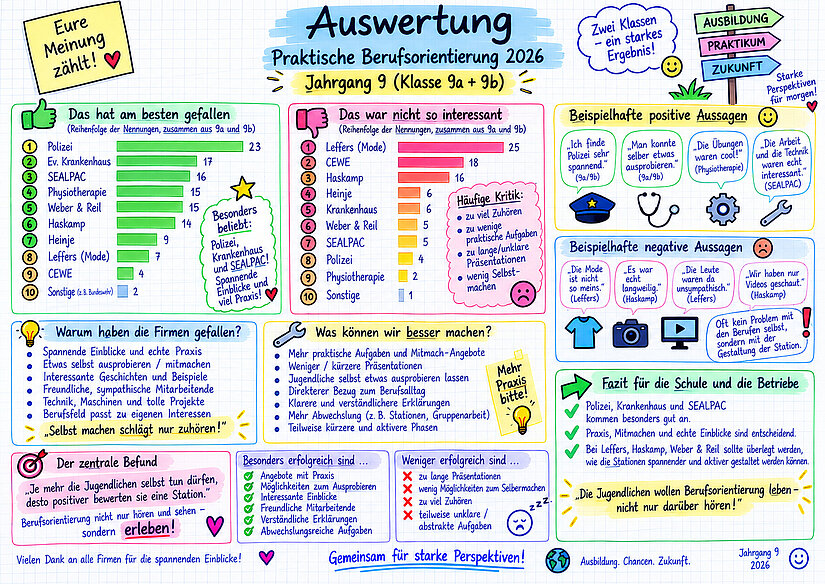 Eure
Meinung
zählt!
Auswertung
Praktische Berufsorientierung 2026
Jahrgang 9 (Klasse 9a + 9b)
Zwei Klassen
– ein starkes
Ergebnis!
AUSBILDUNG
PRAKTIKUM
ZUKUNFT
Starke
Perspektiven
für morgen!
Das hat am besten gefallen
(Reihenfolge der Nennungen, zusammen aus 9a und 9b)
1 Polizei 23
2 Ev. Krankenhaus 17
3 SEALPAC 16
4 Physiotherapie 15
5 Weber & Reil 15
6 Haskamp 14
7 Heinje 9
8 Leffers (Mode) 7
9 CEWE 4
10 Sonstige (z. B. Bundeswehr) 2
Besonders
beliebt:
Polizei,
Krankenhaus
und SEALPAC!
Spannende
Einblicke und
viel Praxis!
Das war nicht so interessant
(Reihenfolge der Nennungen, zusammen aus 9a und 9b)
1 Leffers (Mode) 25
2 CEWE 18
3 Haskamp 16
4 Heinje 6
5 Krankenhaus 6
6 Weber & Reil 5
7 SEALPAC 5
8 Polizei 4
9 Physiotherapie 2
10 Sonstige 1
Häufige Kritik:
• zu viel Zuhören
• zu wenige
praktische Aufgaben
• zu lange/unklare
Präsentationen
• wenig Selbst-
machen
Beispielhafte positive Aussagen
„Ich finde
Polizei sehr
spannend."
(9a/9b)
„Man konnte
selber etwas
ausprobieren."
(9a/9b)
„Die Übungen
waren cool!"
(Physiotherapie)
„Die Arbeit
und die Technik
waren echt
interessant."
(SEALPAC)
Beispielhafte negative Aussagen
„Die Mode
ist nicht
so meins."
(Leffers)
„Es war
echt
langweilig."
(Haskamp)
„Die Leute
waren da
unsympathisch."
(Leffers)
„Wir haben nur
Videos geschaut."
(Haskamp)
Oft kein Problem mit
den Berufen selbst,
sondern mit der
Gestaltung der Station.
!
Warum haben die Firmen gefallen?
• Spannende Einblicke und echte Praxis
• Etwas selbst ausprobieren / mitmachen
• Interessante Geschichten und Beispiele
• Freundliche, sympathische Mitarbeitende
• Technik, Maschinen und tolle Projekte
• Berufsfeld passt zu eigenen Interessen
„Selbst machen schlägt nur zuhören!"
Was können wir besser machen?
• Mehr praktische Aufgaben und Mitmach-Angebote
• Weniger / kürzere Präsentationen
• Jugendliche selbst etwas ausprobieren lassen
• Direkterer Bezug zum Berufsalltag
• Klarere und verständlichere Erklärungen
• Mehr Abwechslung (z. B. Stationen, Gruppenarbeit)
• Teilweise kürzere und aktivere Phasen
Mehr
Praxis
bitte!
Fazit für die Schule und die Betriebe
Polizei, Krankenhaus und SEALPAC
kommen besonders gut an.
Praxis, Mitmachen und echte Einblicke sind entscheidend.
Bei Leffers, Haskamp, Weber & Reil sollte überlegt werden,
wie die Stationen spannender und aktiver gestaltet werden können.
„Die Jugendlichen wollen Berufsorientierung leben –
nicht nur darüber hören!"
Der zentrale Befund
„Je mehr die Jugendlichen selbst tun dürfen,
desto positiver bewerten sie eine Station."
Berufsorientierung nicht nur hören und sehen –
sondern erleben!
Besonders erfolgreich sind ...
Angebote mit Praxis
Möglichkeiten zum Ausprobieren
Interessante Einblicke
Freundliche Mitarbeitende
Verständliche Erklärungen
Abwechslungsreiche Aufgaben
Weniger erfolgreich sind ...
zu lange Präsentationen
wenig Möglichkeiten zum Selbermachen
zu viel Zuhören
teilweise unklare /
abstrakte Aufgaben
zzz
Vielen Dank an alle Firmen für die spannenden Einblicke!
Gemeinsam für starke Perspektiven!
Ausbildung. Chancen. Zukunft.
Jahrgang 9
2026